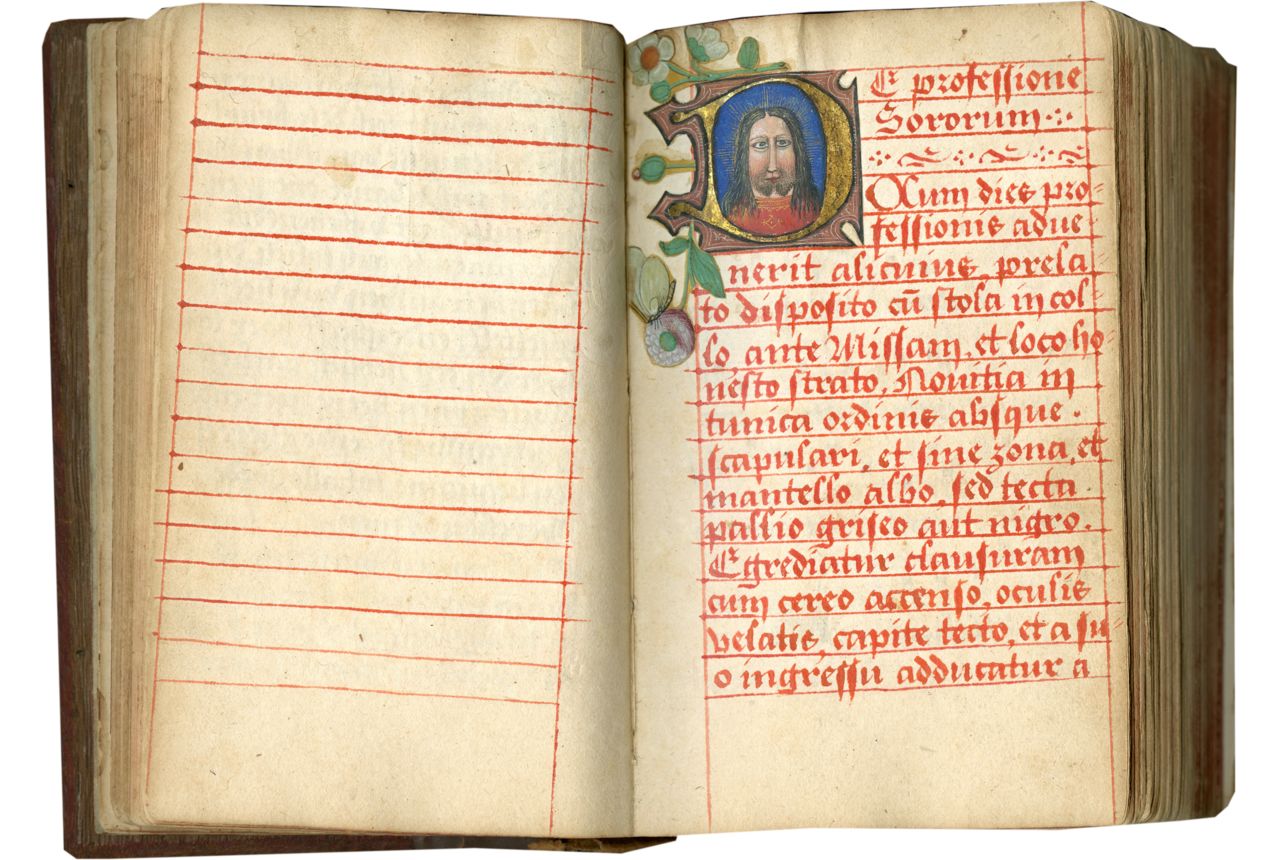 DE professione
Sororum
Cum dies pro-
fessionis adue-
nerit alicuius, prela-
to disposito cū stola in col-
lo, ante Missam, et loco ho-
nesto strato, Nouitia in
tunica ordinis absque
scapulari, et sine zona, et
mantello albo, sed tecta
pallio griseo aut nigro.
Egrediatur clausuram
cum cereo accenso, oculis
velatis, capite tecto, et a su-
o ingressu adducatur a